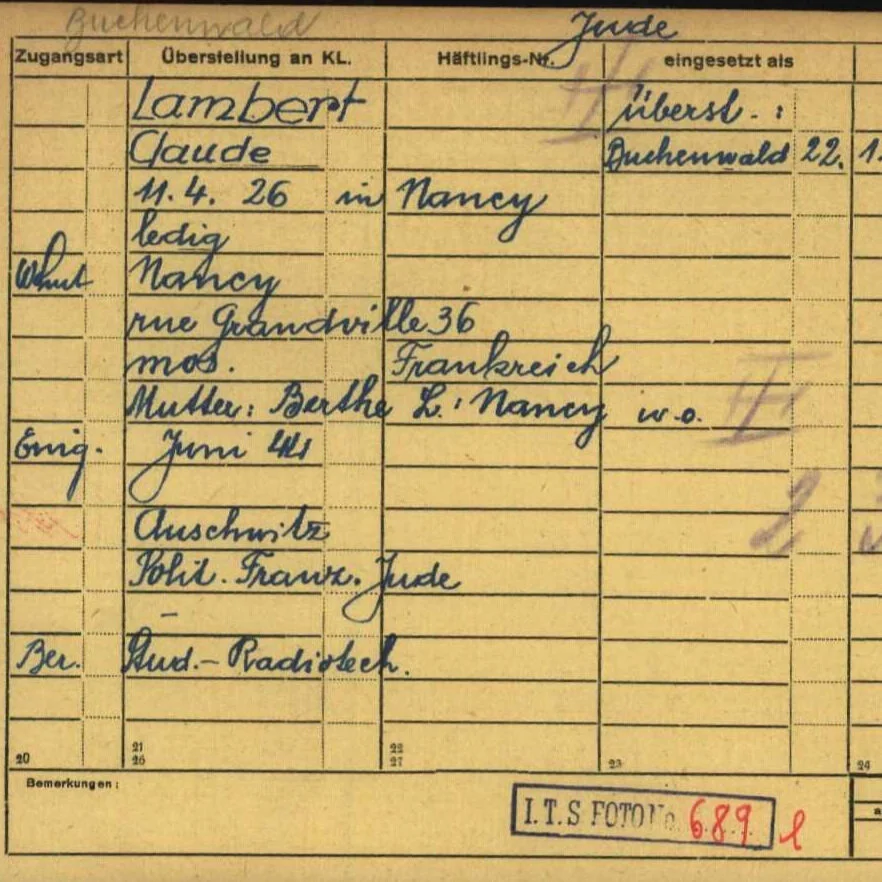 Buchenwald
Jude
Zugangsart Überstellung an KL. Häftlings-Nr. eingesetzt als
Lambert überst. :
Claude Buchenwald 22. 1.
11. 4. 26 in Nancy
ledig
Wohnt Nancy
rue Grandville 36
mos. Frankreich
Mutter: Berthe L.: Nancy w.o.
Einig. Juni 44
2
Auschwitz
Polit. Franz. Jude
Ber. Stud.- Radiotech.
20 21 26 22 27 23 24
Bemerkungen:
I.T.S FOTO No. 689